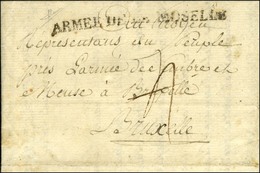 ARMEE DE LA MOSELLE
Representans du Peuple
près Larmée de Sambre et
Meuse à Bruxelle
Bruxelle